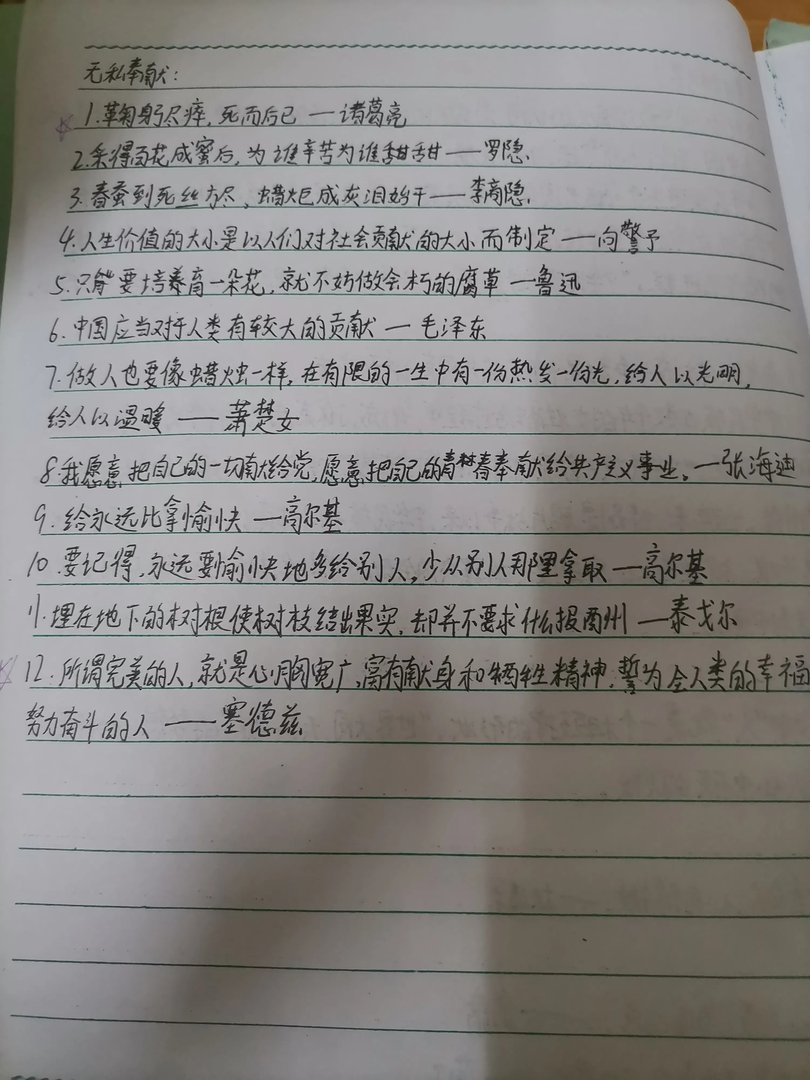 无私奉献：
1.鞠躬尽瘁，死而后已 —诸葛亮
2.采得百花成蜜后，为谁辛苦为谁甜甜——罗隐.
3.春蚕到死丝方尽，蜡炬成灰泪始干——李商隐.
4.人生价值的大小是以人们对社会贡献的大小而制定 ——向警予
5.只能要培养育一朵花，就不妨做会朽的腐草 —鲁迅
6.中国应当对于人类有较大的贡献 — 毛泽东
7.做人也要像蜡烛一样，在有限的一生中有一份热发一份光，给人以光明，
给人以温暖 ——萧楚女
8.我愿意把自己的一切献给党，愿意把自己的青春奉献给共产主义事业。—张海迪
9.给永远比拿愉快 —高尔基
10.要记得，永远要愉快地多给别人，少从别人那里拿取 —高尔基
11.埋在地下的树根使树枝结出果实，却并不要求什么报酬 —泰戈尔
12.所谓完美的人，就是心胸宽广，富有献身和牺牲精神，誓为全人类的幸福
努力奋斗的人 ——塞德兹